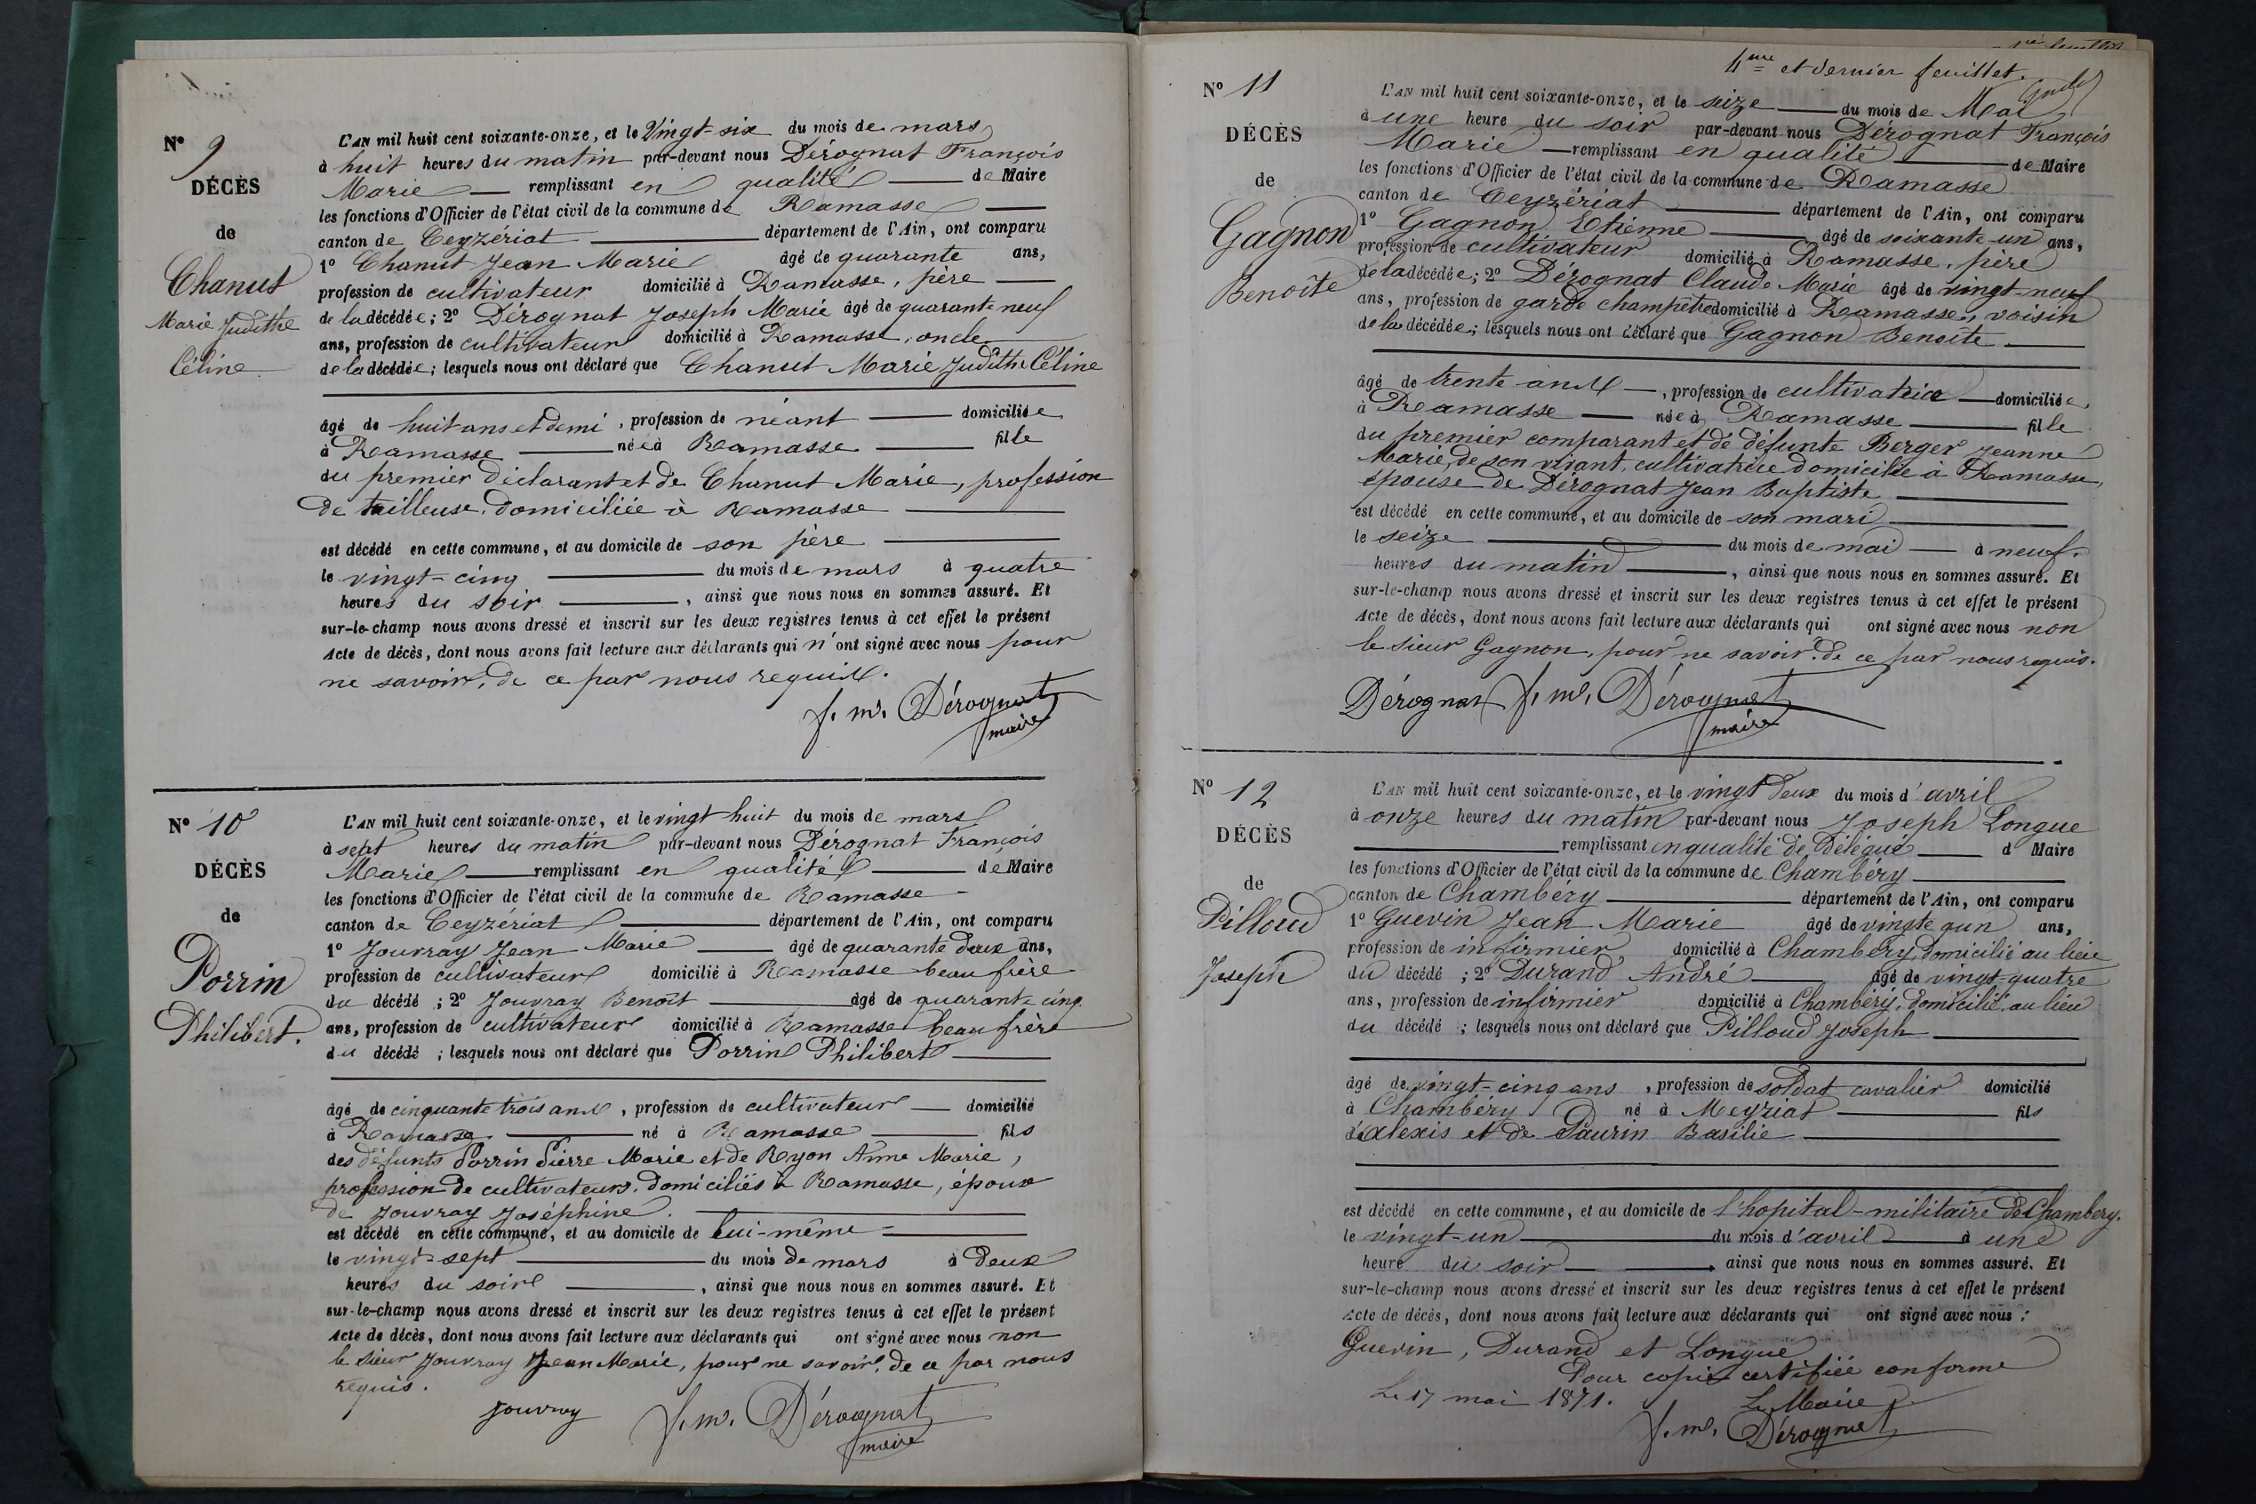 N° 9
DÉCÈS
de
Chanut
Marie Judithe
Céline
L'AN mil huit cent soixante-onze, et le Vingt-six du mois de mars
à huit heures du matin par-devant nous Dérognat François
Marie remplissant en qualité de Maire
les fonctions d'Officier de l'état civil de la commune de Ramasse
canton de Ceyzériat département de l'Ain, ont comparu
1° Chanut Jean Marie âgé de quarante ans,
profession de cultivateur domicilié à Ramasse, père
de la décédée; 2° Dérognat Joseph Marie âgé de quarante neuf
ans, profession de cultivateur domicilié à Ramasse, oncle
de la décédée; lesquels nous ont déclaré que Chanut Marie Judithe Céline
âgé de huit ans et demi, profession de néant domiciliée
à Ramasse née à Ramasse fille
du premier déclarant et de Chanut Marie, profession
de tailleuse, domiciliée à Ramasse
est décédé en cette commune, et au domicile de son père
le vingt-cinq du mois de mars à quatre
heures du soir, ainsi que nous nous en sommes assuré. Et
sur-le-champ nous avons dressé et inscrit sur les deux registres tenus à cet effet le présent
Acte de décès, dont nous avons fait lecture aux déclarants qui n'ont signé avec nous pour
ne savoir, de ce par nous requis.
f. m. Dérognat
maire
N° 10
DÉCÈS
de
Porrin
Philibert.
L'AN mil huit cent soixante-onze, et le vingt huit du mois de mars
à sept heures du matin par-devant nous Dérognat François
Marie remplissant en qualité de Maire
les fonctions d'Officier de l'état civil de la commune de Ramasse
canton de Ceyzériat département de l'Ain, ont comparu
1° Jouvray Jean Marie âgé de quarante deux ans,
profession de cultivateur domicilié à Ramasse beau frère
du décédé; 2° Jouvray Benoît âgé de quarante cinq
ans, profession de cultivateur domicilié à Ramasse beau frère
du décédé; lesquels nous ont déclaré que Porrin Philibert
âgé de cinquante trois ans, profession de cultivateur domicilié
à Ramasse né à Ramasse fils
des défunts Porrin Pierre Marie et de Ryon Anne Marie,
profession de cultivateurs, domiciliés à Ramasse, époux
de Jouvray Joséphine.
est décédé en cette commune, et au domicile de lui-même
le vingt-sept du mois de mars à deux
heures du soir, ainsi que nous nous en sommes assuré. Et
sur-le-champ nous avons dressé et inscrit sur les deux registres tenus à cet effet le présent
Acte de décès, dont nous avons fait lecture aux déclarants qui ont signé avec nous non
le sieur Jouvray Jean Marie, pour ne savoir, de ce par nous
requis.
Jouvray f. m. Dérognat
maire
4eme et dernier feuillet.
N° 11
DÉCÈS
de
Gagnon
Benoîte
L'AN mil huit cent soixante-onze, et le seize du mois de Mai
à une heure du soir par-devant nous Dérognat François
Marie remplissant en qualité de Maire
les fonctions d'Officier de l'état civil de la commune de Ramasse
canton de Ceyzériat département de l'Ain, ont comparu
1° Gagnon Etienne âgé de soixante-un ans,
profession de cultivateur domicilié à Ramasse, père
de la décédée; 2° Dérognat Claude Marie âgé de vingt-neuf
ans, profession de garde champêtre domicilié à Ramasse, voisin
de la décédée; lesquels nous ont déclaré que Gagnon Benoîte
âgé de trente ans, profession de cultivatrice domiciliée
à Ramasse née à Ramasse fille
du premier comparant et de défunte Berger Jeanne
Marie, de son vivant, cultivatrice domiciliée à Ramasse,
épouse de Dérognat Jean Baptiste
est décédé en cette commune, et au domicile de son mari
le seize du mois de mai à neuf
heures du matin, ainsi que nous nous en sommes assuré. Et
sur-le-champ nous avons dressé et inscrit sur les deux registres tenus à cet effet le présent
Acte de décès, dont nous avons fait lecture aux déclarants qui ont signé avec nous non
le sieur Gagnon, pour ne savoir, de ce par nous requis.
Dérognat f. m. Dérognat
maire
N° 12
DÉCÈS
de
Pilloud
Joseph
L'AN mil huit cent soixante-onze, et le vingt deux du mois d'avril
à onze heures du matin par-devant nous Joseph Longue
remplissant en qualité de Délégué d Maire
les fonctions d'Officier de l'état civil de la commune de Chambéry
canton de Chambéry département de l'Ain, ont comparu
1° Guevin Jean Marie âgé de vingt et un ans,
profession de infirmier domicilié à Chambéry, domicilié au lieu
du décédé; 2° Durand André âgé de vingt-quatre
ans, profession de infirmier domicilié à Chambéry, domicilié au lieu
du décédé; lesquels nous ont déclaré que Pilloud Joseph
âgé de vingt-cinq ans, profession de soldat cavalier domicilié
à Chambéry né à Meyriat fils
d'Alexis et de Paurin Basilie
est décédé en cette commune, et au domicile de l'hopital-militaire de Chambery.
le vingt-un du mois d'avril à une
heure du soir, ainsi que nous nous en sommes assuré. Et
sur-le-champ nous avons dressé et inscrit sur les deux registres tenus à cet effet le présent
Acte de décès, dont nous avons fait lecture aux déclarants qui ont signé avec nous:
Guevin, Durand et Longue
Pour copie certifiée conforme
Le 17 mai 1871. Le Maire
f. m. Dérognat